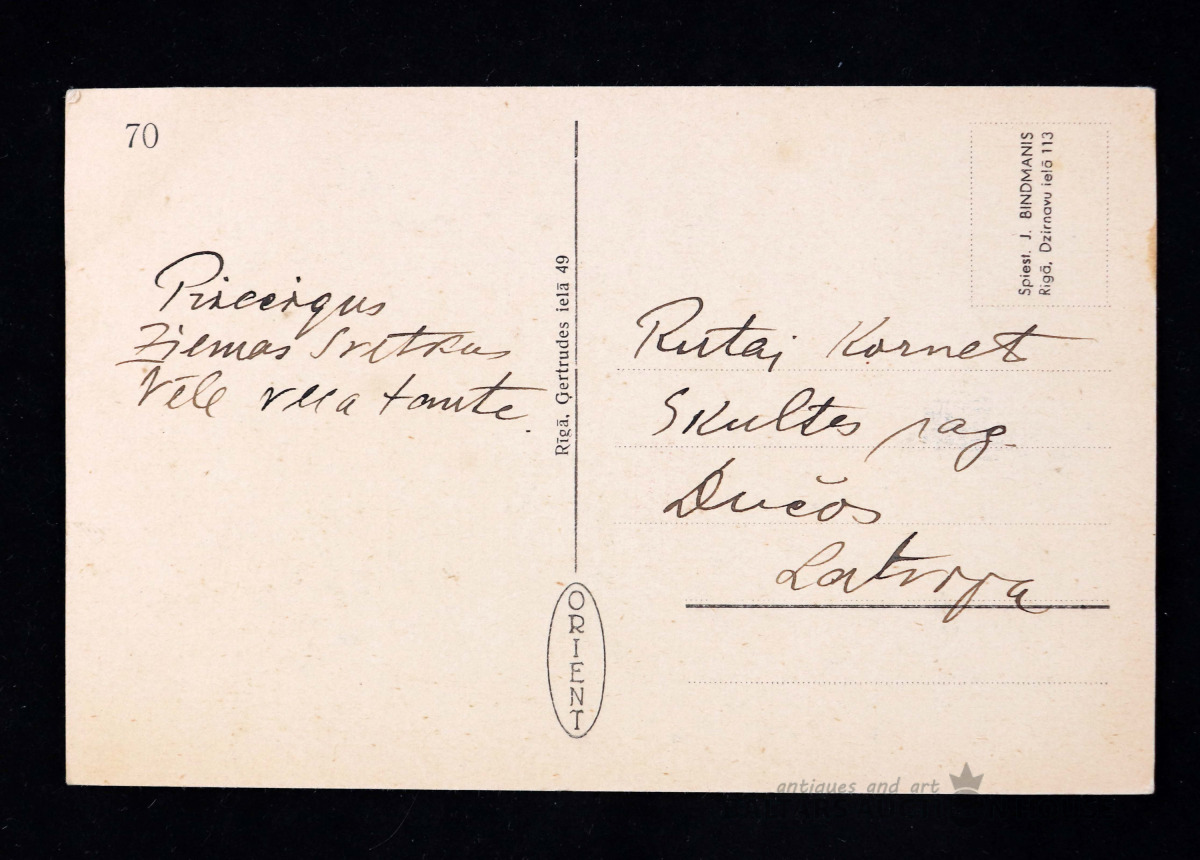 70
Pieceigus
Ziemas Svetkus
Vēle tante.
Rīgā, Ģertrudes ielā 49
ORIENT
Spiest. J. BINDMANIS
Rīgā, Dzirnavu ielā 113
Rutai Kornet
Skultes pag.
Dučos
Latvija
antiques and art